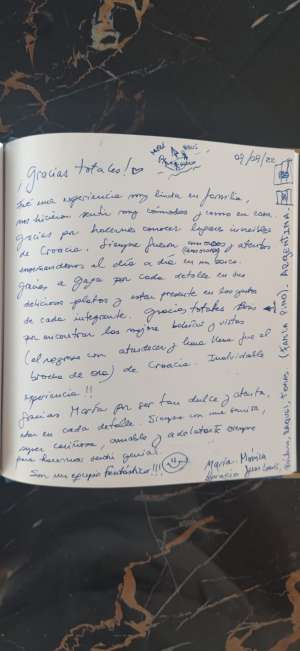 09/09/22
¡Gracias totales!
Fué una experiencia muy linda en familia,
nos hicieron sentir muy cómodos y como en casa.
Gracias por hacernos conocer lugares increíbles
de Croacia. Siempre fueron y atentos
en el día a día en un barco.
Gracias a Gaga por cada detalle en sus
deliciosos platos y estar presente en los gustos
de cada integrante. Gracias totales
por encontrar las mejores bahías y vistas
(el regreso con atardecer y luna llena fue el
broche de oro) de Croacia. Inolvidable
experiencia!!
Gracias Marta por ser tan dulce y atenta,
en cada detalle. Siempre con una sonrisa,
super cariñosa, amable y adelantarte siempre
para hacernos sentir genial.
Son un equipo fantástico!!!
María, Monica
Horacio, Juan Cruz,
Tomas. (Familia Pino). ARGENTINA.